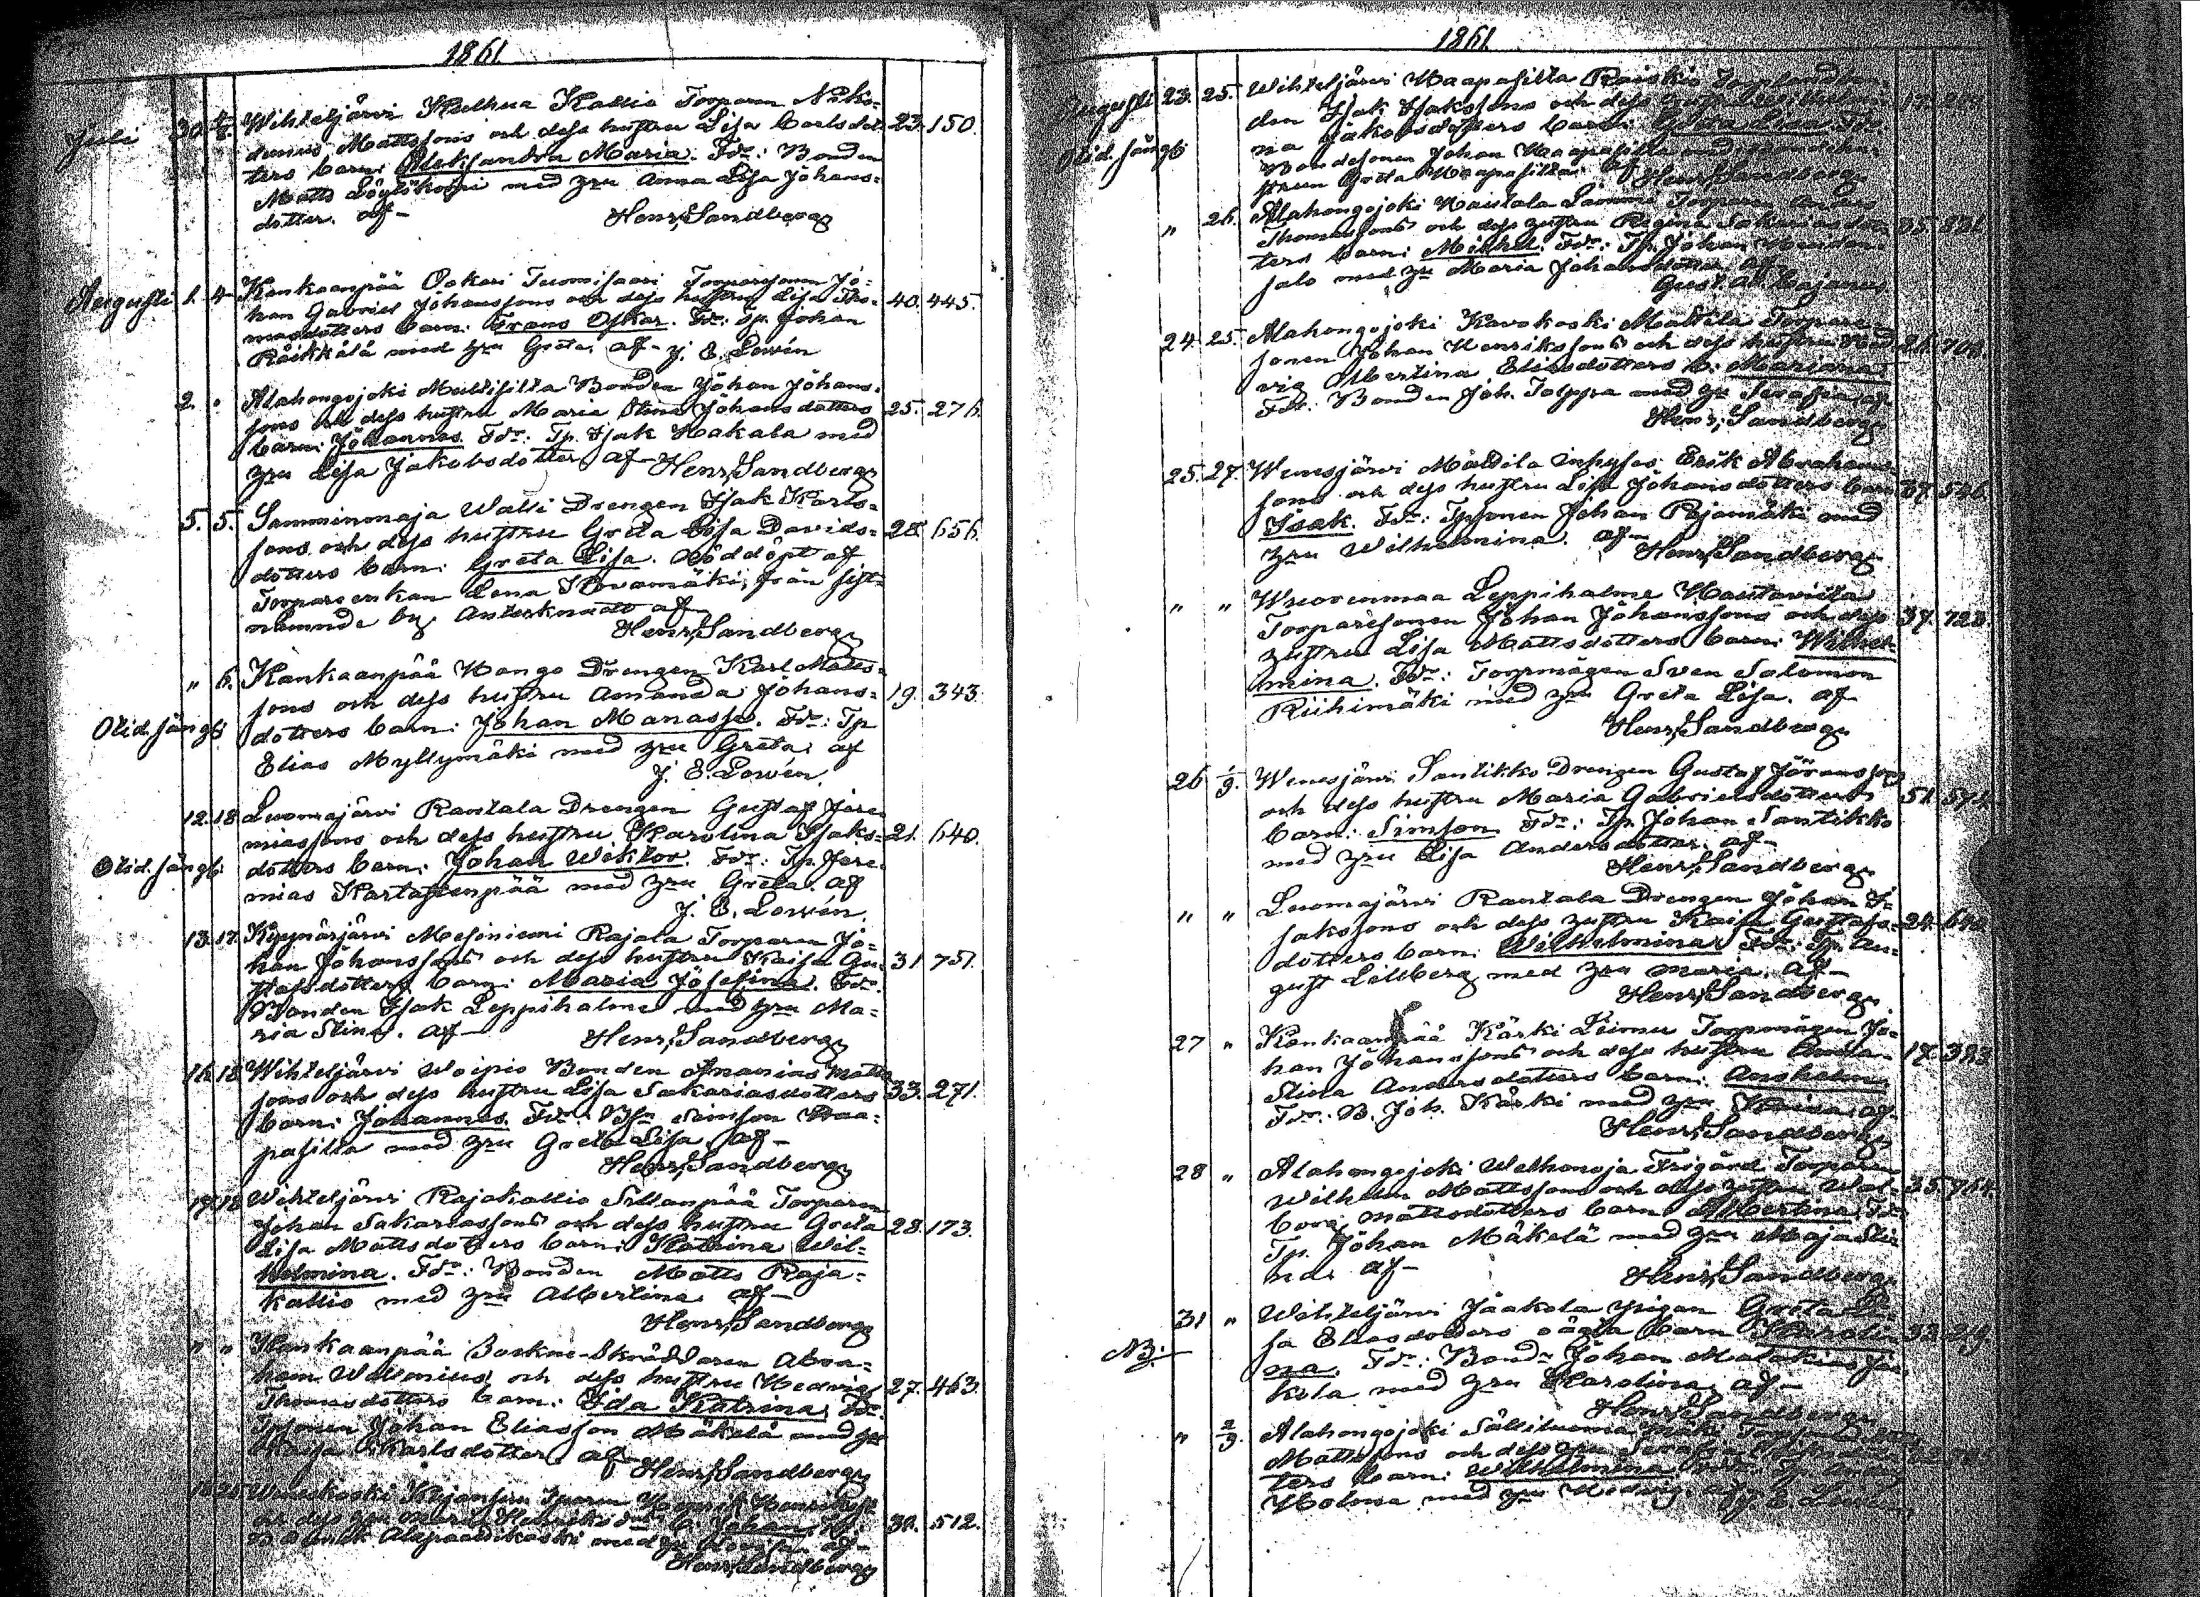 1861
Juli 30. 4/8. Wihteljärvi Kelhua Kallio Torparen Niko=
demus Mattssons och dess hustru Lisa Carlsdot= 23. 150.
ters barn: Aleksandra Maria. Fdr: Bonden
Matts Löytökorpi med hru Anna Lisa Johans=
dotter. af— Henr. Sandberg
Augusti 1. 4 Kankaanpää Ookari Tuomisaari Torparesonen Jo=
han Gabriel Johanssons och dess hustru Lisa Tho= 40. 445.
masdotters barn: Frans Oskar. Fdr: Tp. Johan
Räikkälä med hru Greta. af— J. E. Lowén
2. " Alahongojoki Multisilta Bonden Johan Johans=
sons och dess hustru Maria Stina Johansdotters 25. 276.
barn: Johannes. Fdr: Tp. Isak Hakala med
hru Lisa Jakobsdotter af— Henr. Sandberg
5. 5. Samminmaja Walli Drengen Isak Karls=
sons och dess hustru Greta Lisa Davids= 28. 656.
dotters barn: Greta Lisa. Nöddöpt af
Torpareenkan Lena Kivamäki, från sist=
nämnde by. Antecknadt af
Henr. Sandberg
" 6. Kankaanpää Hongo Drengen Karl Matts=
sons och dess hustru Amanda Johans= 19. 343.
Olid. säng. dotters barn: Johan Manasse. Fdr: Tp
Elias Myllymäki med hru Greta. af
J. E. Lowén
12. 18 Luomajärvi Rantala Drengen Gustaf Jere=
miassons och dess hustru Karolina Isaks= 21. 640.
Olid. säng. dotters barn: Johan Wiktor. Fdr: Tp. Jere=
mias Kartastenpää med hru Greta. af
J. E. Lowén.
13. 17. Kyynärjärvi Mesiniemi Rajala Torparen Jo=
han Johanssons och dess hustru Kaisa Gu= 31. 751.
stafsdotters barn: Maria Josefina. Fdr:
Bonden Isak Leppihalme med hru Ma=
ria Stina. af— Henr. Sandberg
16. 18 Wihteljärvi Woipio Bonden Ananias Matts
sons och dess hustru Lisa Sakariasdotters 33. 271.
barn: Johannes. Fdr: Bsn Simson Haa=
pasilta med hru Greta Lisa. af—
Henr. Sandberg
17. 18 Wihteljärvi Rajakallio Sillanpää Torparen
Johan Sakariassons och dess hustru Greta 28. 173.
Lisa Mattsdotters barn: Katrina Wil=
helmina. Fdr: Bonden Matts Raja=
kallio med hru Albertina. af—
Henr. Sandberg
" " Kankaanpää Sockne-Skräddaren Abra=
ham Wallenius och dess hustru Hedvig 27. 463.
Thomasdotters barn: Ida Katrina. Fdr:
Tpsonen Johan Eliasson Mäkelä med hru
Kaisa Karlsdotter. af Henr. Sandberg
Henrik
30. 512.
Henr. Sandberg
1861
Augusti 23. 25. Wihteljärvi Haapasilta Raiskio
den Isak Isakssons och dess
Olid. säng. na Jakobsdotters barn: Greta Lisa. Fdr
Bondesonen Johan Haapasilta med
strun Greta Haapasilta. af Henr. Sandberg
" 26. Alahongojoki Rautala Lamma Torparen Anders
Thomassons och dess hustru Regina Sakariasdot= 35. 831.
ters barn: Mikkel. Fdr: Tp. Johan
salo med hru Maria Johansdotter. af
Gust. Ad. Cajanus
24. 25. Alahongojoki Karokoski Mattila Torpare=
sonen Johan Henrikssons och dess hustru Hed= 26. 704.
vig Albertina Eliasdotters b: Mariana
Fdr: Bonden Joh. Tolppa med hru Serafia. af
Henr. Sandberg
25. 27. Wenesjärvi Mattila inhyses Erik Abrahams=
sons och dess hustru Lisa Johansdotters barn 37. 546.
Isak. Fdr: Tpsonen Johan Rajamäki med
hru Wilhelmina. af—
Henr. Sandberg
" " Wuorenmaa Leppihalme Hautaviita
Torparesonen Johan Johanssons och dess 37. 722.
hustru Lisa Mattsdotters barn: Wilhel=
mina. Fdr: Torpmågen Sven Salomon
Riihimäki med hru Greta Lisa. af
Henr. Sandberg
26 1/9. Wenesjärvi Santikko Drengen Gustaf Göranssons
och dess hustru Maria Gabrielsdotters 51. 574.
barn: Simson. Fdr: Tp. Johan Santikko
med hru Lisa Andersdotter. af—
Henr. Sandberg
" " Luomajärvi Rantala Drengen Johan I=
sakssons och dess hustru Kaisa Gustafs= 24. 640.
dotters barn: Wilhelmina. Fdr: Tp. Au=
gust Lillberg med hru Maria. af—
Henr. Sandberg
27 " Kankaanpää Kärki Leimu Torpmågen Jo=
han Johanssons och dess hustru Amanda 17. 383
Stina Andersdotters barn: Anshelm
Fdr: B. Joh. Kärki med hru af
Henr. Sandberg
28 " Alahongojoki Welhonoja Frigård Torparen
Wilhelm Mattssons och dess hustru Wal= 35. 784.
borg Mattsdotters barn Albertina. Fdr
Tp. Johan Mäkelä med hru Maja Sti
na. af— Henr. Sandberg
31 " Wihteljärvi Jaakola pigan Greta Li=
sa Eliasdotters oägta barn Karoli= 32. 219.
NB: na. Fdr: Bondn Johan Malakias Jaa
kola med hru Karolina. af—
Henr. Sandberg
" 2/9. Alahongojoki
Mattssons och dess hru
ters barn: Wilhelmina.
Holma med hru Hedvig. af